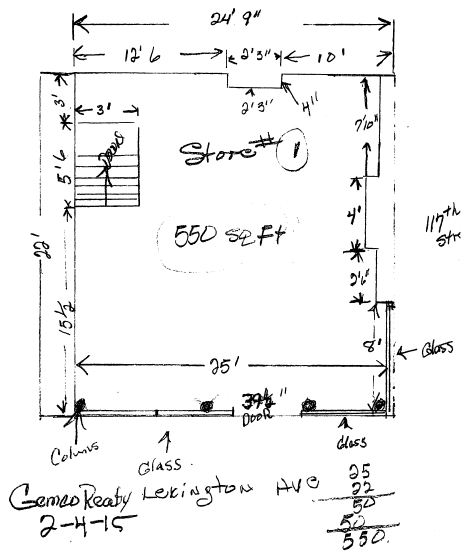 24' 9"
12' 6
2'3"
10'
3'
3'
2'3"
4"
7'10"
Store # 1
5' 6
4'
117th
550 SQ Ft
22'
2'6"
15 1/2
8'
Glass
25'
39 1/2"
DOOR
Columns
Glass
Glass
Gemco Realty Lexington AVE
2-4-15
25
22
50
50
550.